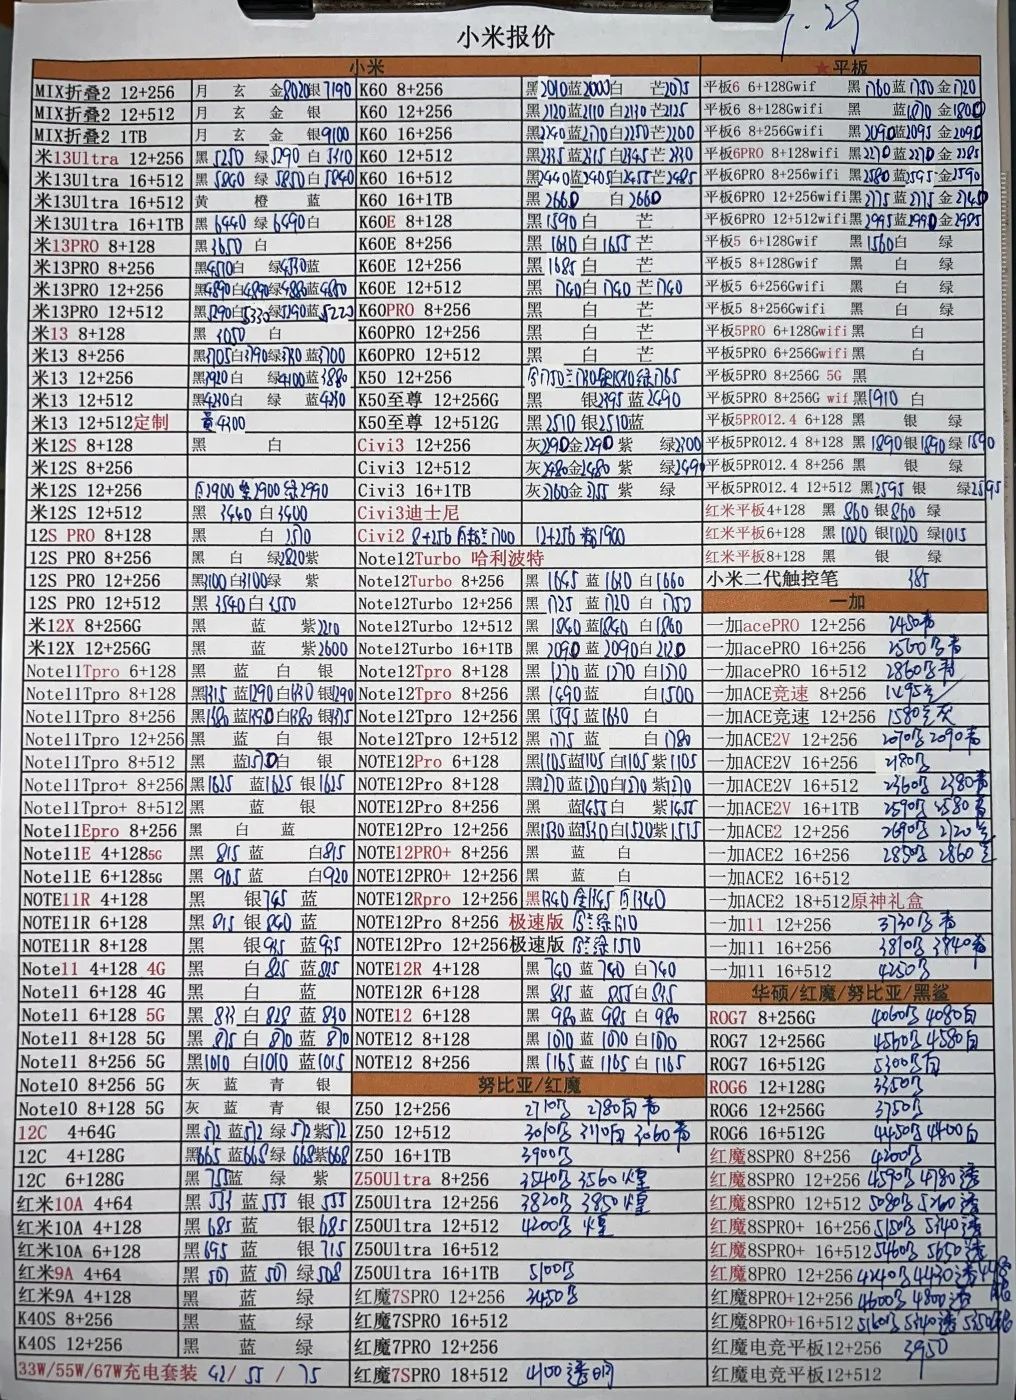 小米报价
7.29
小米
MIX折叠2 12+256 月 玄 金8020银7190
MIX折叠2 12+512 月 玄 金 银
MIX折叠2 1TB 月 玄 金 银9100
米13Ultra 12+256 黑5250 绿5290 白5310
米13Ultra 16+512 黑5840 绿5850 白5840
米13Ultra 16+512 黄 橙 蓝
米13Ultra 16+1TB 黑6440 绿6490白
米13PRO 8+128 黑3650 白
米13PRO 8+256 黑4510白 绿4530蓝
米13PRO 12+256 黑4890白4890绿4880蓝4850
米13PRO 12+512 黑5290白5330绿5290蓝5220
米13 8+128 黑3050 白
米13 8+256 黑3705白3790绿3730蓝3700
米13 12+256 黑3920白 绿4100蓝3880
米13 12+512 黑4230白 绿 蓝4230
米13 12+512定制 黄4300
米12S 8+128 黑 白
米12S 8+256
米12S 12+256 白2900 紫2900 绿2990
米12S 12+512 黑 3440 白3400
12S PRO 8+128 黑 白 2570
12S PRO 8+256 黑 白 绿2820紫
12S PRO 12+256 黑3100白3100绿 紫
12S PRO 12+512 黑 3540白3550
米12X 8+256G 黑 蓝 紫2210
米12X 12+256G 黑 蓝 紫2600
Note11Tpro 6+128 黑 蓝 白 银
Note11Tpro 8+128 黑1315 蓝1290白1430 银1290
Note11Tpro 8+256 黑1380 蓝1390白1380 银1375
Note11Tpro 12+256 黑 蓝 白 银
Note11Tpro 8+512 黑 蓝1570白 银
Note11Tpro+ 8+256 黑1625 蓝1625 银1625
Note11Tpro+ 8+512 黑 蓝 银
Note11Epro 8+256 黑 白 蓝
Note11E 4+1285G 黑 815 蓝 白815
Note11E 6+1285G 黑 905 蓝 白920
NOTE11R 4+128 黑 银745 蓝
NOTE11R 6+128 黑 815 银840 蓝
NOTE11R 8+128 黑 银935 蓝935
Note11 4+128 4G 黑 白825 蓝825
Note11 6+128 4G 黑 白 蓝
Note11 6+128 5G 黑 833 白 828 蓝 830
Note11 8+128 5G 黑 875 白 870 蓝 870
Note11 8+256 5G 黑1010 白1010 蓝1015
Note10 8+256 5G 灰 蓝 青 银
Note10 8+128 5G 灰 蓝 青 银
12C 4+64G 黑572 蓝572 绿 572紫572
12C 4+128G 黑665 蓝668 绿 668紫668
12C 6+128G 黑 755蓝 绿 紫
红米10A 4+64 黑 553 蓝 555 银 555
红米10A 4+128 黑 685 蓝 银685
红米10A 6+128 黑 695 蓝 银 715
红米9A 4+64 黑 507 蓝 507 绿508
红米9A 4+128 黑 蓝 绿
K40S 8+256 黑 蓝 绿
K40S 12+256 黑 蓝 绿
33W/55W/67W充电套装 42/ 55 / 75
K60 8+256 黑2010蓝2000白 芒2075
K60 12+256 黑2120蓝2110白2130芒2125
K60 16+256 黑2240蓝2170白2250芒2200
K60 12+512 黑2335蓝2315白2345芒2330
K60 16+512 黑2440蓝2405白2455芒2485
K60 16+1TB 黑2660 白2660
K60E 8+128 黑1590白 芒
K60E 8+256 黑1630白1655芒
K60E 12+256 黑1685白 芒
K60E 12+512 黑1740白1740芒1740
K60PRO 8+256 黑 白 芒
K60PRO 12+256 黑 白 芒
K60PRO 12+512 黑 白 芒
K50 12+256
K50至尊 12+256G 黑 银2395蓝2490
K50至尊 12+512G 黑2510 银2510蓝
Civi3 12+256 灰2290金2290 紫 绿2300
Civi3 12+512 灰2480金2480 紫 绿2490
Civi3 16+1TB 灰2760金2755 紫 绿
Civi3迪士尼
Civi2 8+256 1700 12+256 粉1900
Note12Turbo 哈利波特
Note12Turbo 8+256 黑 1645 蓝 1630 白1660
Note12Turbo 12+256 黑 1725 蓝 1720 白 1750
Note12Turbo 12+512 黑 1840 蓝1840 白1860
Note12Turbo 16+1TB 黑 2090 蓝 2090白2120
Note12Tpro 8+128 黑 1270 蓝 1270 白1270
Note12Tpro 8+256 黑 1490 蓝 白1500
Note12Tpro 12+256 黑 1595 蓝1630 白
Note12Tpro 12+512 黑 1775 蓝 白 1780
NOTE12Pro 6+128 黑1105蓝1105白1105紫1105
NOTE12Pro 8+128 黑1270蓝1270白1270紫1270
NOTE12Pro 8+256 黑 蓝1455白 紫1455
NOTE12Pro 12+256 黑1530蓝1530白1520紫1515
NOTE12PRO+ 8+256 黑 蓝 白
NOTE12PRO+ 12+256 黑 蓝 白
NOTE12Rpro 12+256 黑1340 金1345 白1340
NOTE12Pro 8+256 极速版
NOTE12Pro 12+256极速版 1570
NOTE12R 4+128 黑 740 蓝 740 白740
NOTE12R 6+128 黑 845 蓝 855白845
NOTE12 6+128 黑 980 蓝 985 白 980
NOTE12 8+128 黑 1070 蓝 1070 白1070
NOTE12 8+256 黑 1165 蓝 1165 白 1165
努比亚/红魔
Z50 12+256 2710黑 2780白 青
Z50 12+512 3010黑 3110白 3060青
Z50 16+1TB 3900黑
Z50Ultra 8+256 3540黑 3560 煌
Z50Ultra 12+256 3820黑 3850 煌
Z50Ultra 12+512 4200黑 煌
Z50Ultra 16+512
Z50Ultra 16+1TB 5100黑
红魔7SPRO 12+256 3450黑
红魔7SPRO 16+512
红魔7PRO 12+256
红魔7SPRO 18+512 4100 透明
★平板
平板6 6+128Gwif 黑 1760蓝1750 金1720
平板6 8+128Gwif 黑 蓝1870 金1800
平板6 8+256Gwif 黑2090蓝2095 金2090
平板6PRO 8+128wifi 黑2270蓝2270 金2285
平板6PRO 8+256wifi 黑2580蓝2595 金2590
平板6PRO 12+256wifi 黑2775蓝2775 金2740
平板6PRO 12+512wifi 黑2995蓝2990金2985
平板5 6+128Gwif 黑1560白 绿
平板5 8+128Gwif 黑 白 绿
平板5 6+256Gwif 黑 白 绿
平板5 8+256Gwif 黑 白 绿
平板5PRO 6+128Gwifi 黑 白
平板5PRO 6+256Gwifi 黑 白
平板5PRO 8+256G 5G 黑
平板5PRO 8+256G wif 黑1910 白
平板5PRO12.4 6+128 黑 银 绿
平板5PRO12.4 8+128 黑 1890银1890绿1890
平板5PRO12.4 8+256 黑 银 绿
平板5PRO12.4 12+512 黑2595 银 绿2595
红米平板4+128 黑 860 银860 绿
红米平板6+128 黑 1020 银1020 绿1015
红米平板8+128 黑 银 绿
小米二代触控笔 385
一加
一加acePRO 12+256 2450青
一加acePRO 16+256 2560黑青
一加acePRO 16+512 2860黑青
一加ACE竞速 8+256
一加ACE竞速 12+256
一加ACE2V 12+256 2070黑 2090青
一加ACE2V 16+256 2180黑
一加ACE2V 16+512 2360黑 2380青
一加ACE2V 16+1TB 2590黑 2580青
一加ACE2 12+256
一加ACE2 16+256
一加ACE2 16+512
一加ACE2 18+512原神礼盒
一加11 12+256 3730黑 青
一加11 16+256 3810黑 3840青
一加11 16+512 4250黑
华硕/红魔/努比亚/黑鲨
ROG7 8+256G 4060黑 4080白
ROG7 12+256G 4560黑 4580白
ROG7 16+512G 5300黑白
ROG6 12+128G 3350黑
ROG6 12+256G 3750黑
ROG6 16+512G 4450黑 4400白
红魔8SPRO 8+256 4200黑
红魔8SPRO 12+256 4590黑 4780透
红魔8SPRO 12+512 5080黑 5260透
红魔8SPRO+ 16+256 5150黑 5340透
红魔8SPRO+ 16+512 5460黑 5650透
红魔8PRO 12+256 4240黑 4430透
红魔8PRO+12+256 4600黑 4800透
红魔8PRO+16+512 5160黑 5340透
红魔电竞平板12+256 3950
红魔电竞平板12+512